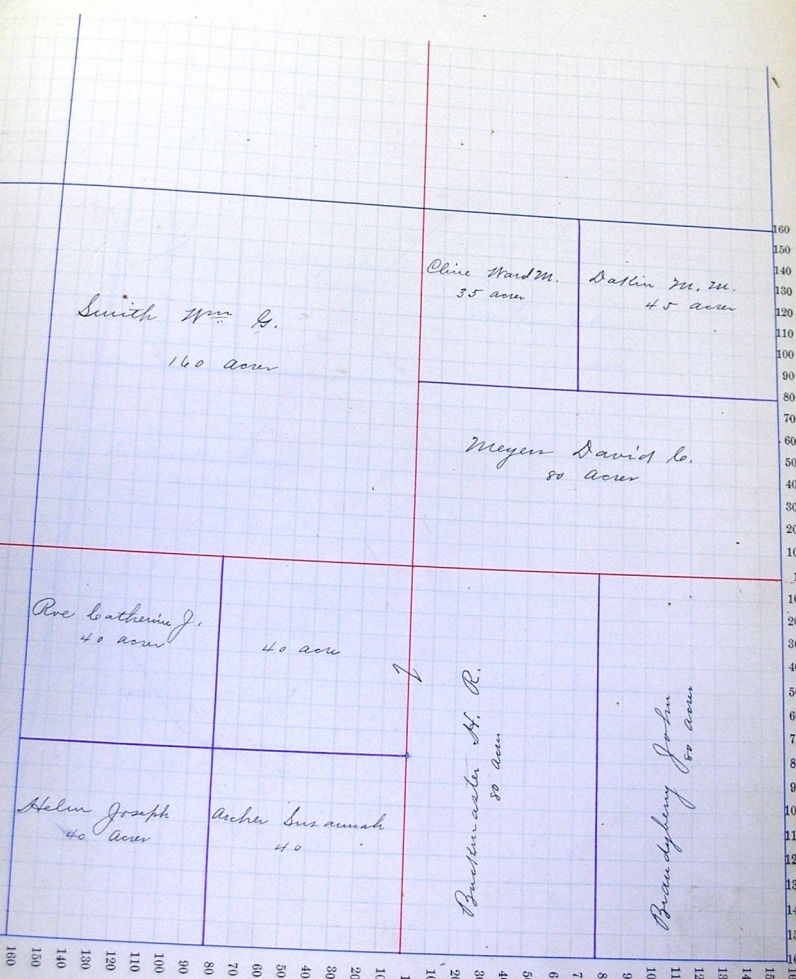 Smith Wm G.
160 acres
Cline Ward M.
35 acres
Dakin M. M.
45 acres
Meyers David C.
80 acres
Roe Catherine J.
40 acres
40 acres
Helm Joseph
40 Acres
Archer Susannah
40
Buckmaster H. R.
80 acres
Brandyberry John
80 acres
160
150
140
130
120
110
100
90
80
70
60
50
40
30
20
10
1
160 150 140 130 120 110 100 90 80 70 60 50 40 30 20 10 1